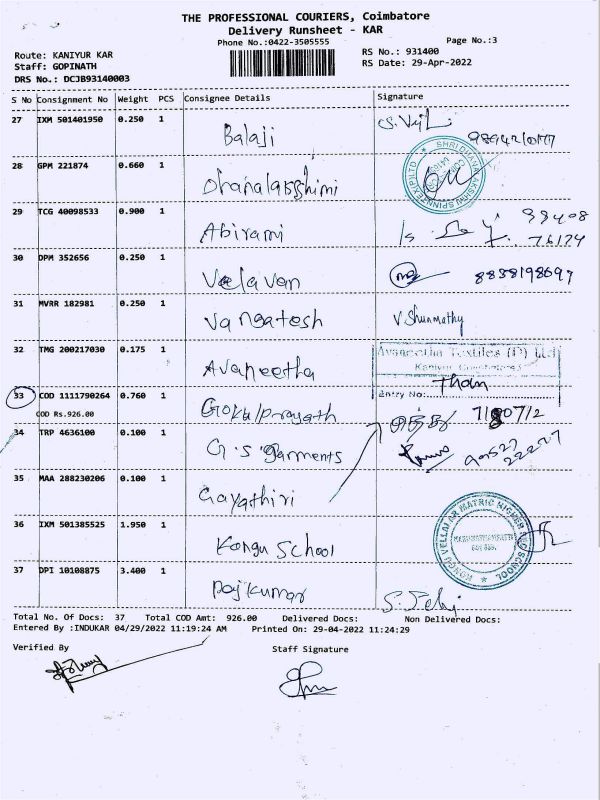 THE PROFESSIONAL COURIERS, Coimbatore
Delivery Runsheet - KAR
Phone No.:0422-3505555
Page No.:3
Route: KANIYUR KAR
RS No.: 931400
Staff: GOPINATH
RS Date: 29-Apr-2022
DRS No.: DCJB93140003
S No Consignment No Weight PCS Consignee Details Signature
27 IXM 501401950 0.250 1 Balaji
28 GPM 221874 0.660 1 Dhanalakshimi
29 TCG 40098533 0.900 1 Abirami
30 DPM 352656 0.250 1 Velavan 8838198697
31 MVRR 182981 0.250 1 Vangatesh V. Shunmathy
32 TMG 200217030 0.175 1 Avaneetha
Avaneetha Textiles (P) Ltd
Entry No:
33 COD 1111790264 0.760 1 Gokulprayath
COD Rs.926.00
34 TRP 4636100 0.100 1 G.S garments
35 MAA 288230206 0.100 1 Gayathiri
36 IXM 501385525 1.950 1 Kongu School
KONGU VELLALAR MATRIC HIGHER SEC SCHOOL
37 DPI 10108875 3.400 1 Rajkumar
Total No. Of Docs: 37 Total COD Amt: 926.00 Delivered Docs: Non Delivered Docs:
Entered By :INDUKAR 04/29/2022 11:19:24 AM Printed On: 29-04-2022 11:24:29
Verified By Staff Signature